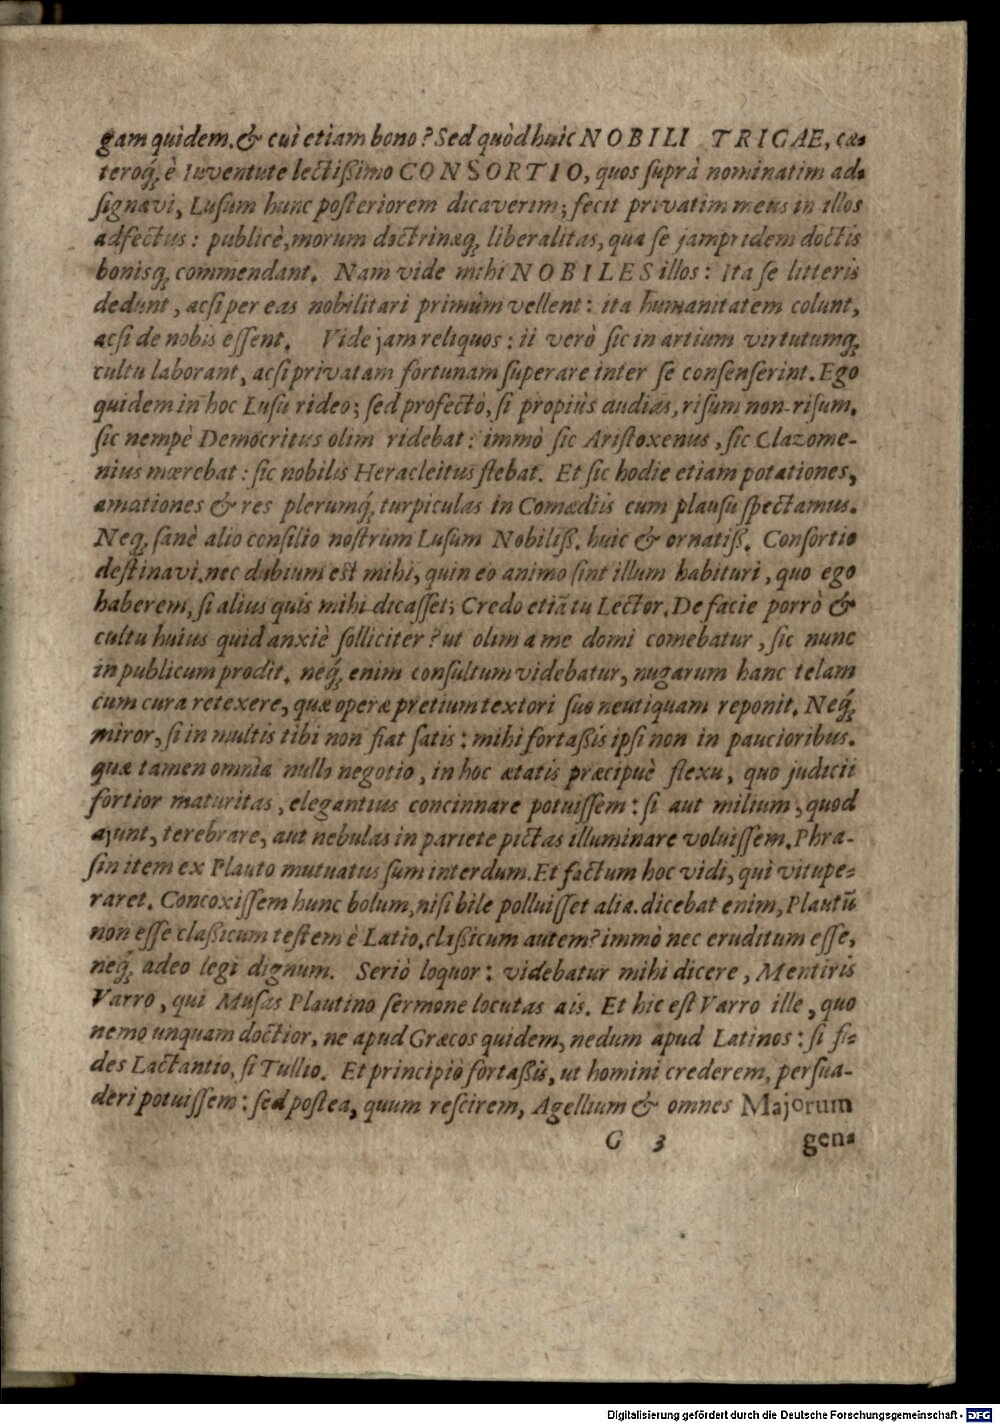 gam quidem. & cui etiam bono? Sed quòd huic NOBILI TRIGAE, cæ-
teroq́; è Iuventute lectißimo CONSORTIO, quos suprà nominatim ad-
signavi, Lusum hunc posteriorem dicaverim; fecit privatim meus in illos
adfectus: publicè, morum doctrinæq; liberalitas, qua se jampridem doctis
bonisq; commendant. Nam vide mihi NOBILES illos: Ita se litteris
dedunt, acsi per eas nobilitari primùm vellent: ita humanitatem colunt,
acsi de nobis essent. Vide jam reliquos: ii verò sic in artium virtutumq;
cultu laborant, acsi privatam fortunam superare inter se consenserint. Ego
quidem in hoc Lusu rideo; sed profectò, si propiùs audias, risum non-risum.
sic nempè Democritus olim ridebat: immò sic Aristoxenus, sic Clazome-
nius mœrebat: sic nobilis Heracleitus flebat. Et sic hodie etiam potationes,
amationes & res plerumq́; turpiculas in Comœdiis cum plausu spectamus.
Neq; sanè alio consilio nostrum Lusum Nobiliß. huic & ornatiß. Consortio
destinavi. nec dubium est mihi, quin eo animo sint illum habituri, quo ego
haberem, si alius quis mihi dicasset; Credo etiā tu Lector. De facie porrò &
cultu huius quid anxiè solliciter? ut olim a me domi comebatur, sic nunc
in publicum prodit. neq́; enim consultum videbatur, nugarum hanc telam
cum cura retexere, quæ operæ pretium textori suo neutiquam reponit. Neq́;
miror, si in multis tibi non fiat satis: mihi fortaßis ipsi non in paucioribus.
quæ tamen omnia nullo negotio, in hoc ætatis præcipuè flexu, quo judicii
fortior maturitas, elegantius concinnare potuissem: si aut milium, quod
ajunt, terebrare, aut nebulas in pariete pictas illuminare voluissem. Phra-
sin item ex Plauto mutuatus sum interdum. Et factum hoc vidi, qui vitupe-
raret. Concoxissem hunc bolum, nisi bile polluisset alia. dicebat enim, Plautū
non esse claßicum testem è Latio. claßicum autem? immò nec eruditum esse,
neq́; adeo legi dignum. Seriò loquor: videbatur mihi dicere, Mentiris
Varro, qui Musas Plautino sermone locutas ais. Et hic est Varro ille, quo
nemo unquam doctior, ne apud Græcos quidem, nedum apud Latinos: si fi-
des Lactantio, si Tullio. Et principiò fortaßis, ut homini crederem, persua-
deri potuissem: sed postea, quum rescirem, Agellium & omnes Majorum
G 3 gen-
Digitalisierung gefördert durch die Deutsche Forschungsgemeinschaft - DFG